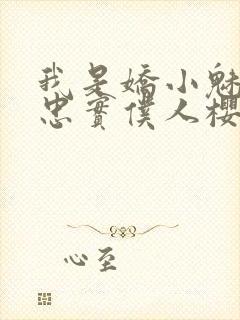 我是嬌小魅
忠實僕人櫻
心至